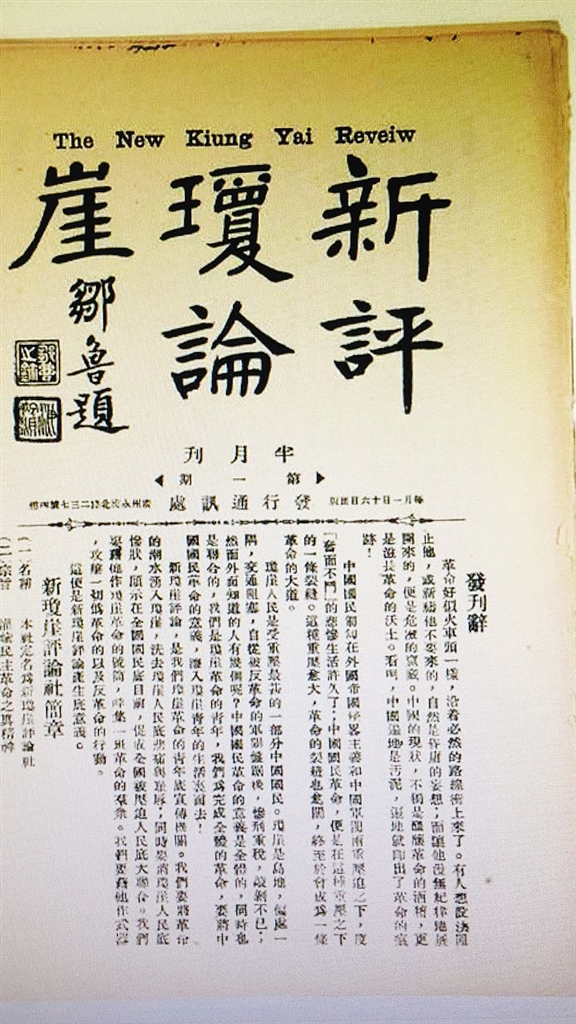 The New Kiung Yai Reveiw
新瓊崖
評論
鄒魯題
半月刊
第一期
每月一日十六日出版
發行通訊處
發刊辭
革命好似火車頭一樣，沿着必然的路線衝上來了。有人想設法阻
止他，或詛咒他不要來的，自然是昏庸的妄想；而讓他沒無紀律地展
開來的，便是危險的
中國的現狀，不獨是醞釀革命的酒精，更
是滋長革命的沃土。看啊，中國遍地是污泥，遍地就印出了革命的痕
跡！
中國國民
在外國帝國
主義和中國軍閥兩重壓迫之下，度
的悲慘生活許久了；中國國民革命，便是在這種重壓之下
的一條裂縫。這種重壓愈大，革命的裂縫也愈闊，終至於會成為一條
革命的大道。
瓊崖人民是受重壓最甚的一部分中國國民。瓊崖是島地，偏處一
隅，交通阻塞，自從被反革命的軍閥盤踞後，慘刑重稅，
不已；
然而外面知道的人有幾個呢？中國國民革命的意義是全體的，同時也
是聯合的，我們是瓊崖革命的青年，我們為完成全體的革命，要將中
國國民革命的意義，灌入瓊崖青年的生活裏面去！
新瓊崖評論，是我們瓊崖革命的青年底宣傳機關。我們要將革命
的潮水湧入瓊崖，洗去瓊崖人民底悲痛與恥辱；同時要將瓊崖人民底
慘狀，顯示在全國國民底目前，促成全國被壓迫人民底大聯合。我們
要藉他作瓊崖革命的號筒，
集一班革命的羣衆。我們要藉他作武器
，攻擊一切非革命的以及反革命的行動。
這便是新瓊崖評論產生底意義。
新瓊崖評論社簡章
（一）名稱　本社定名爲新瓊崖評論社
（二）宗旨
民主革命之真精神